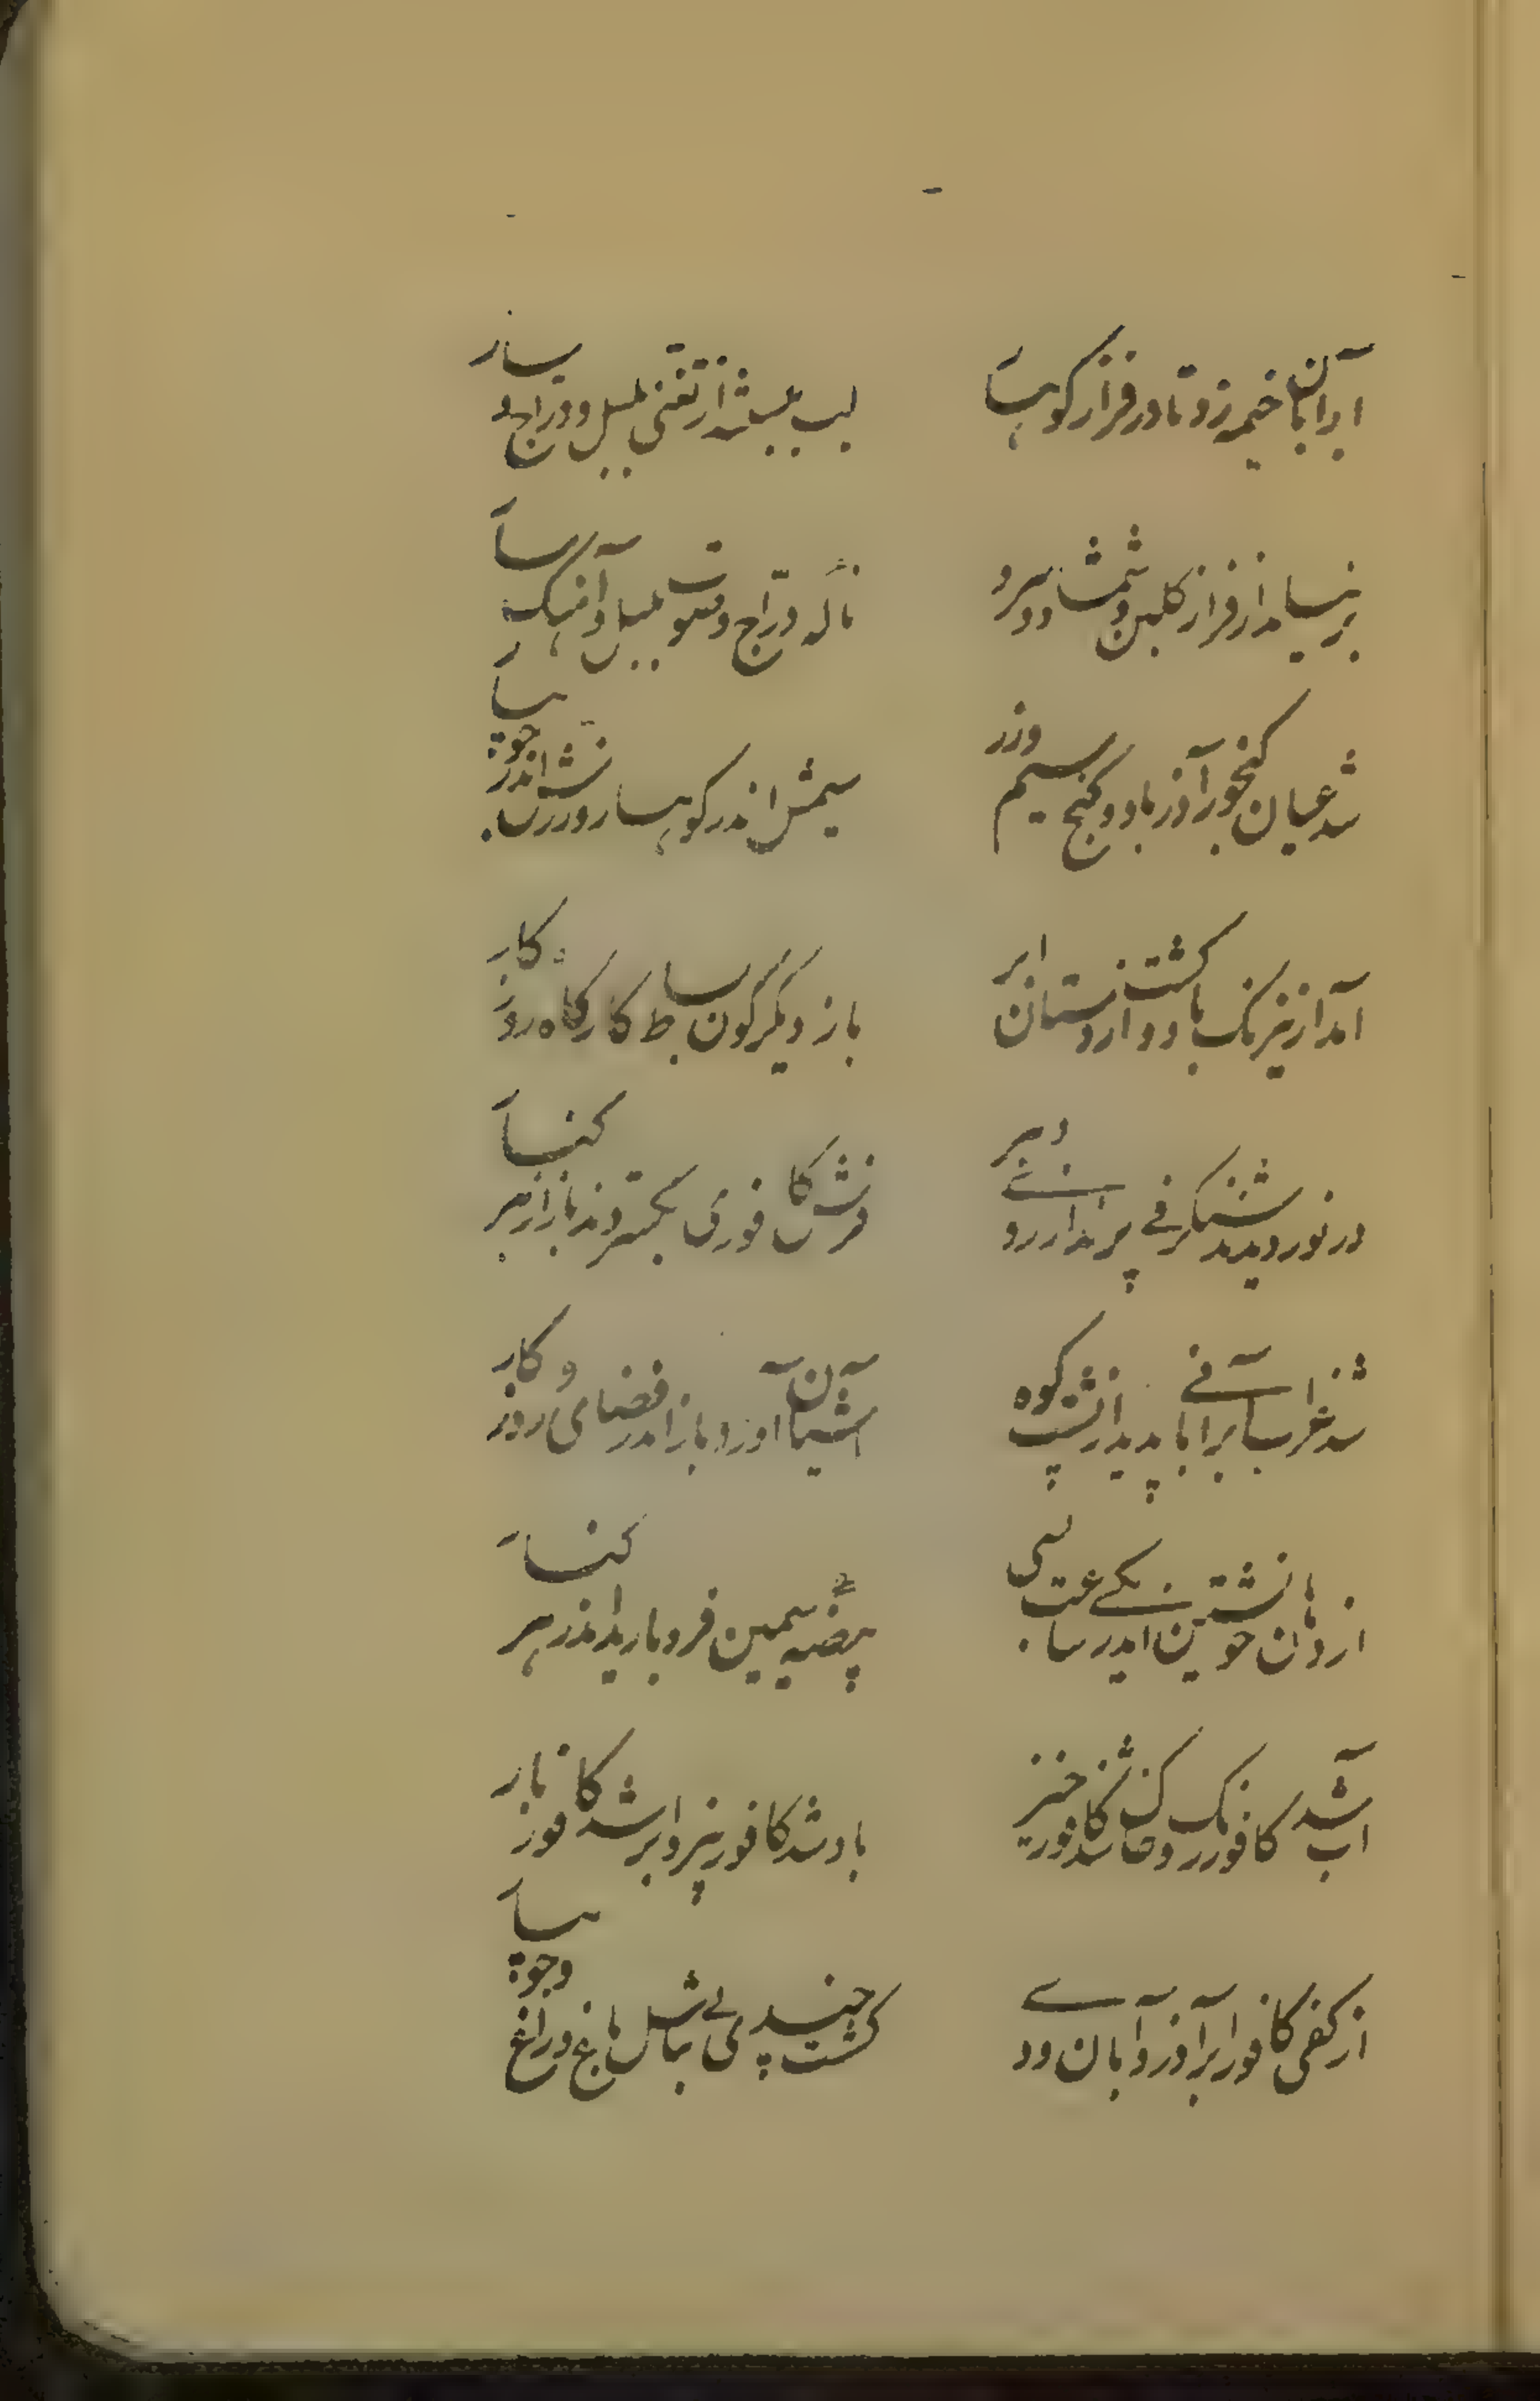 ابر آبان خیمه زد تا در فراز کوهسار
لب ببست از تغنی بلبل و دراج و سار
بر نیامد از فراز گلبن و شمشاد و سرو
ناله دراج و صوت بلبل و آهنگ سار
شد عیان گنجور آذر باد و گنج سیم و زر
سیمش اندر کوهسار و زرش اندر جویبار
آمد از نیرنگ باد و از دستان ابر
باز دیگرگون بساط کارگاه روزگار
در نوردیدند شنگرفی پرند از روی دهر
فرش کافوری بگستردند باز از هر کنار
شد غراب ابر آبانی پدید از پشت کوه
آشیان آورد باز اندر فضای روزگار
از دهان خویشتن اندر یکی ساعت همی
بیضه سیمین فرو بارید اندر هر کنار
آب شد کافور رنگ و خاک شد کافور خیز
باد شد کافور بیز و ابر شد کافور بار
از کف کافور بر آذر و آبان و دی
گشت چندی باغ و راغ و جویبار